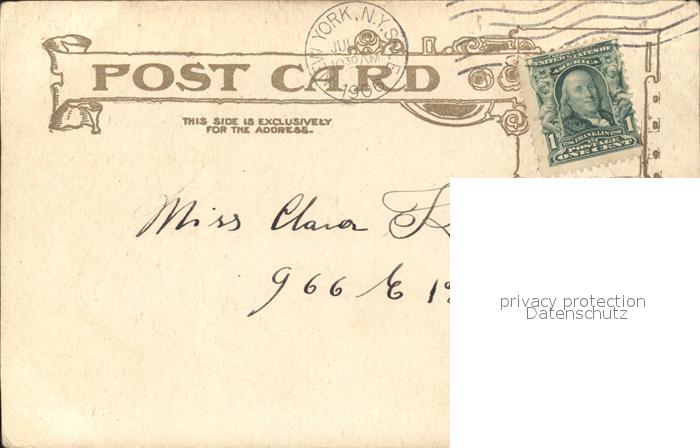 NEW YORK, N.Y.
JUL
10 30 AM
190
POST CARD
THIS SIDE IS EXCLUSIVELY
FOR THE ADDRESS.
UNITED STATES OF
AMERICA
1 FRANKLIN 1
POSTAGE
ONE CENT
Miss Clara
966 E
privacy protection
Datenschutz